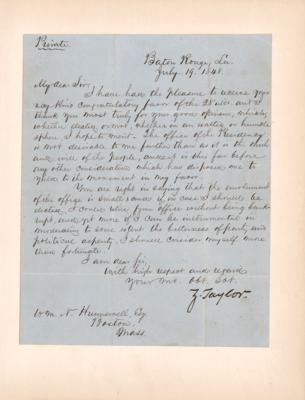 Private.
Baton Rouge, La.
July 19, 1848.
My dear Sir,
I have had the pleasure to receive your
very kind congratulatory favor of the 28 ulto. and I
thank you most truly for your good opinion, which,
whether elected or not, whether in an exalted or humble
sphere, I hope to merit. The office of the Presidency
is not desirable to me further than as it is the choice
and will of the People, and it is this far before
any other consideration which has disposed me to
yield to the movement in my favor.
You are right in saying that the emolument
of the office is small, and if in case I should be
elected, I could retire from office without being bank-
rupt, and yet more if I can be instrumental in
moderating to some extent the bitterness of party and
political asperity, I should consider myself more
than fortunate.
I am dear sir,
with high respect and regard
Your Mo. Obt. Svt.
Z. Taylor.
Wm. N. Esq
Boston,
Mass.